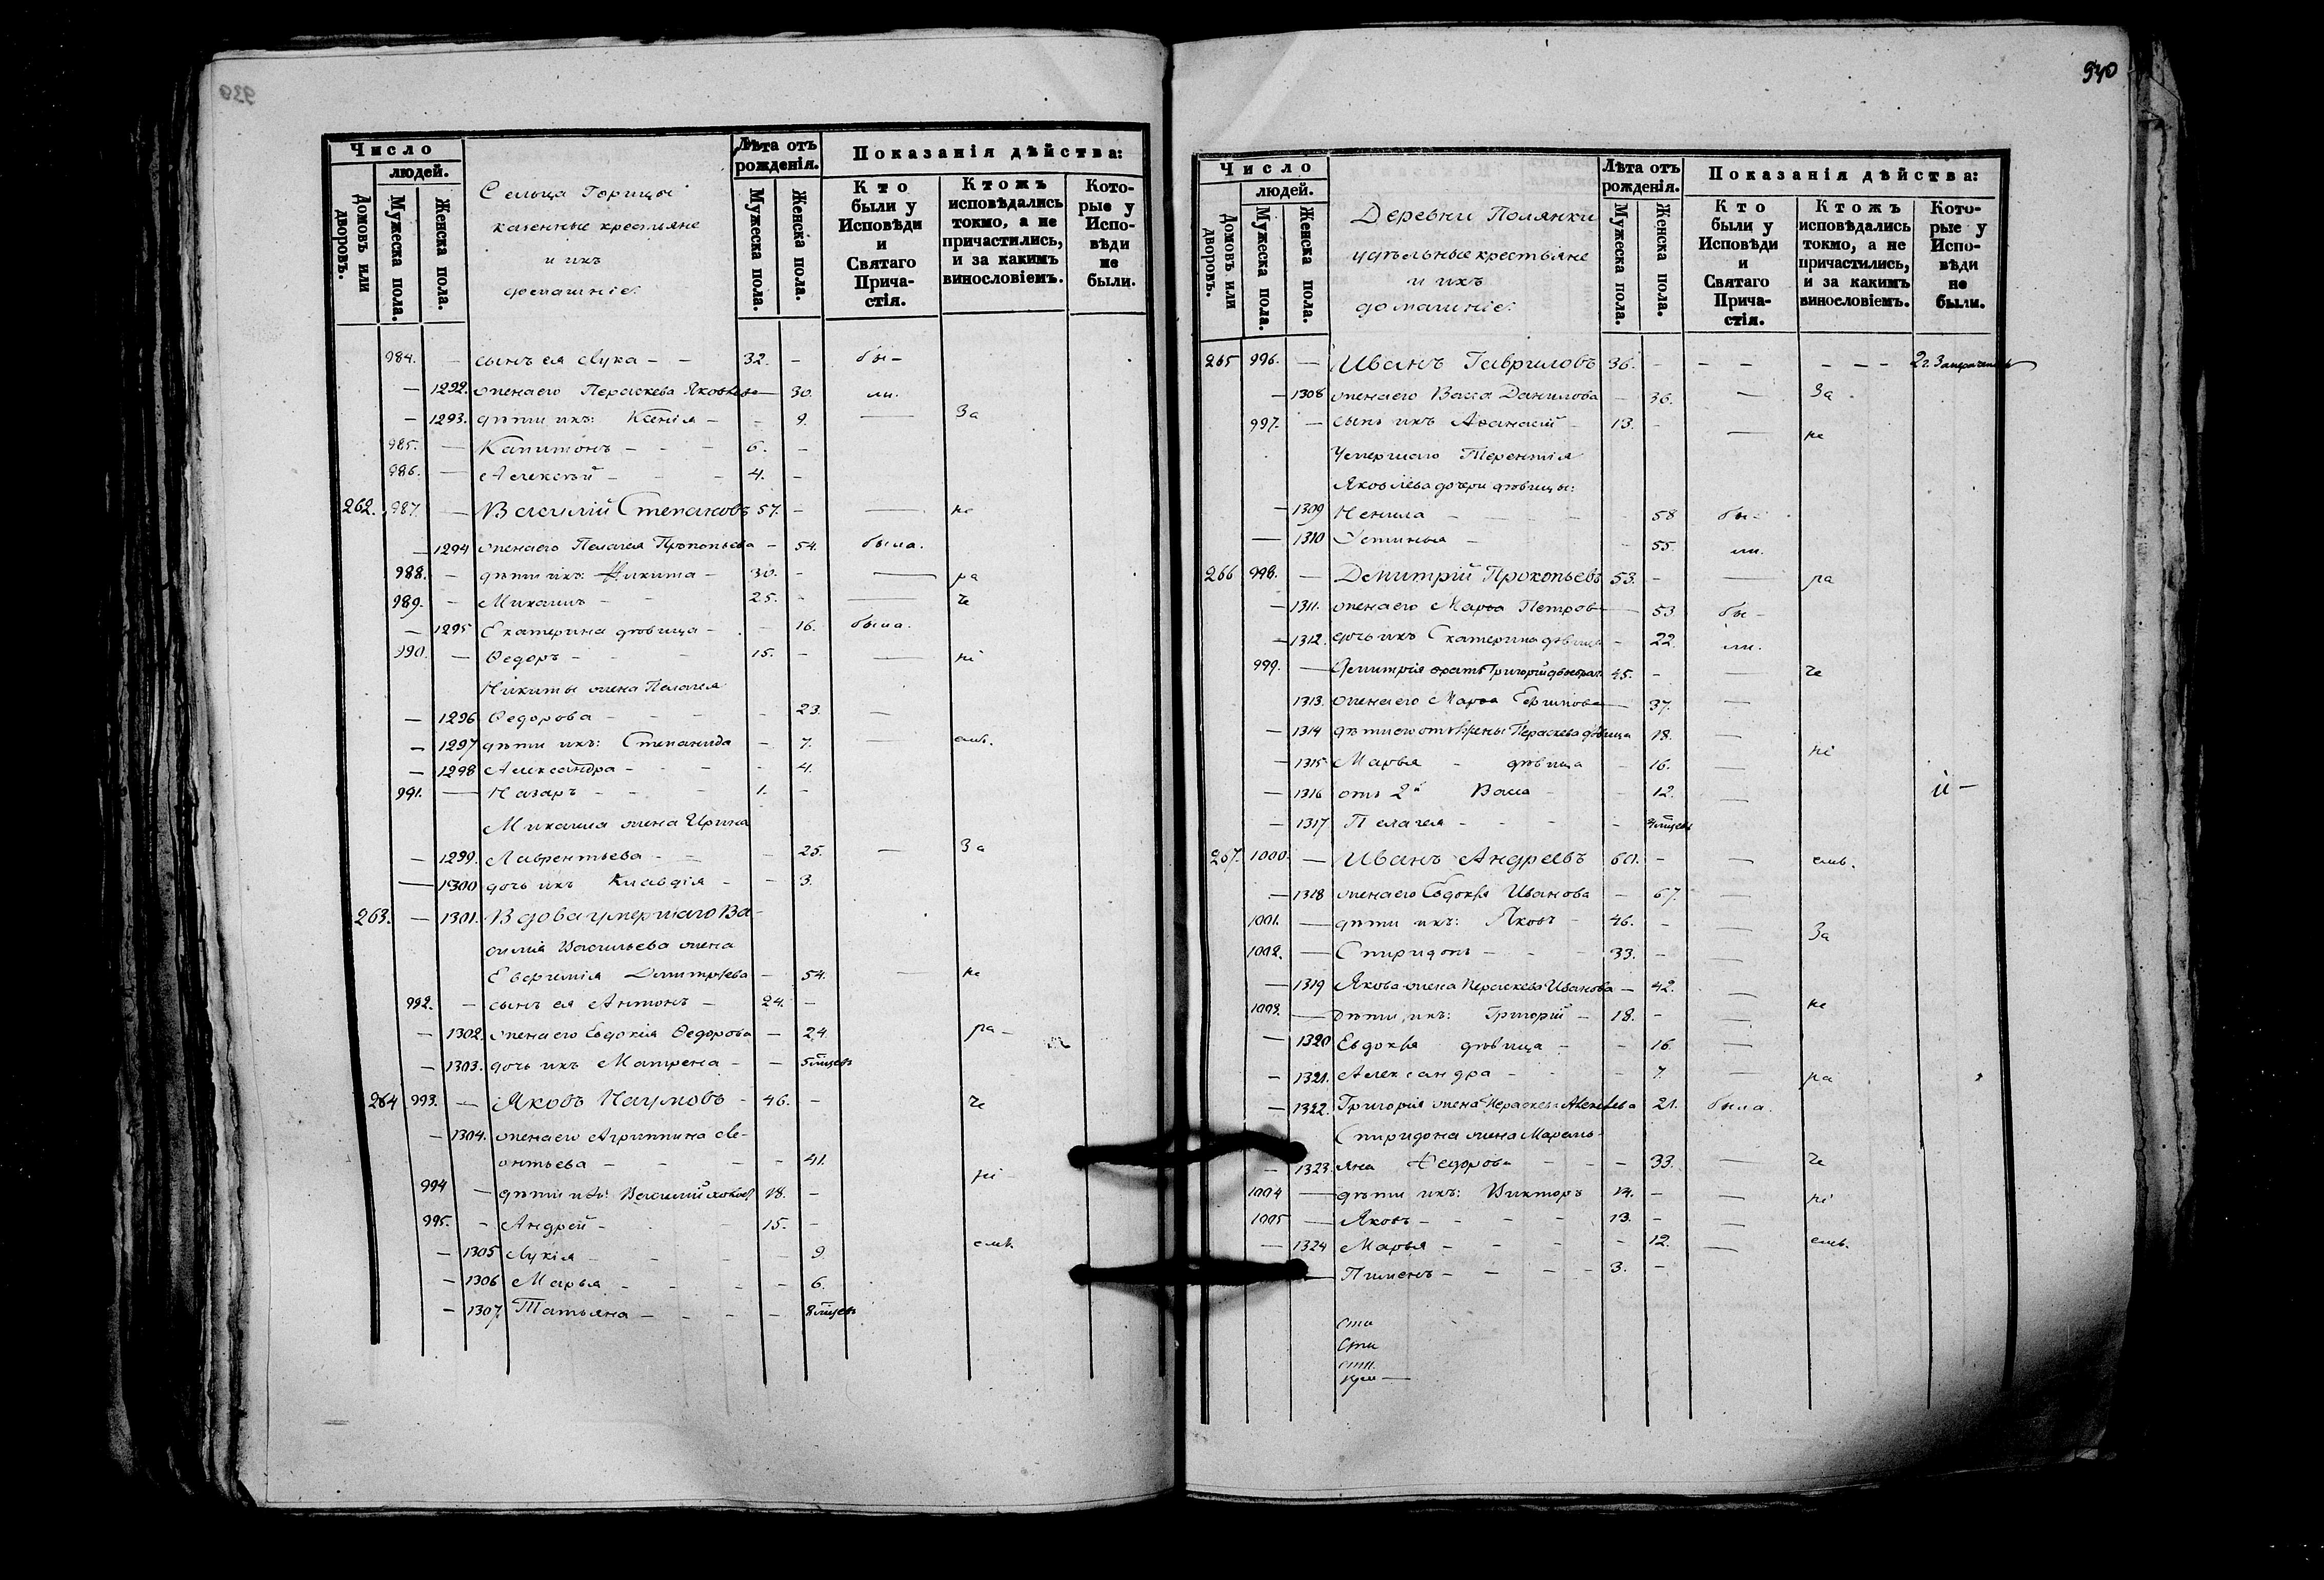 Число
людей.
Домовъ или дворовъ.
Мужеска пола.
Женска пола.
Сельца Горицы
казенные крестьяне
и ихъ
домашніе.
Лѣта отъ рожденія.
Мужеска пола.
Женска пола.
Показанія дѣйства:
Кто были у Исповѣди и Святаго Причастія.
Ктожъ исповѣдались токмо, а не причастились, и за какимъ винословіемъ.
Которые у Исповѣди не были.
984. — сынъ ея Лука — — 32. — бы-
— 1292. жена его Параскева Яковлева — 30. ли.
— 1293. дѣти ихъ: Ксенія — — 9. — За
985. — Капитонъ — — 6. —
986. — Алексѣй — — 4. —
262. 987. — Василій Степановъ 57. — — не
— 1294 жена его Пелагея Прокопьева — 54. была.
988. — дѣти ихъ: Никита — 30. — — ра
989. — Михаилъ — 25. — — че
— 1295 Екатерина дѣвица — — 16. была.
990. — Ѳедоръ — — 15. — — ні
Никиты жена Пелагея
— 1296 Ѳедорова — — — 23. —
— 1297 дѣти ихъ: Степанида — 7. — емъ.
— 1298 Александра — — — 4.
991. — Назаръ — — — 1. —
Михаила жена Ирина
— 1299. Лаврентьева — — — 25. — За
— 1300 дочь ихъ Клавдія — — 3.
263. — 1301. Вдова умершаго Ва-
силія Васильева жена
Евѳимія Димитріева — 54. — не
992. — сынъ ея Антонъ — 24. —
— 1302. жена его Евдокія Ѳедорова — 24. ра —
— 1303. дочь ихъ Матрена — — 5 мѣцевъ
264 993. — Яковъ Наумовъ — 46. — че
— 1304. жена его Агриппина Ле-
онтьева — — — 41. ні
994 — дѣти ихъ: Василій холос. 18. —
995. — Андрей — — 15. —
— 1305 Лукія — — — 9. емъ.
— 1306 Марья — — — 6.
— 1307. Татьяна — — — 8 мѣцевъ
940
Число
людей.
Домовъ или дворовъ.
Мужеска пола.
Женска пола.
Деревни Полянки
удѣльные крестьяне
и ихъ
домашніе.
Лѣта отъ рожденія.
Мужеска пола.
Женска пола.
Показанія дѣйства:
Кто были у Исповѣди и Святаго Причастія.
Ктожъ исповѣдались токмо, а не причастились, и за какимъ винословіемъ.
Которые у Исповѣди не были.
265 996. — Иванъ Гавриловъ 36. — — — — — — 2 г.
— 1308 жена его Васса Данилова — 36. — За
997. — сынъ ихъ Аѳанасій — 13. — — не
Умершаго Терентія
Яковлева дочери дѣвицы:
— 1309 Ненила — — — 58 бы-
— 1310 Устинья — — 55. ли.
266 998. — Димитрій Прокопьевъ 53. — — ра
— 1311. жена его Марѳа Петров — 53 бы-
— 1312. дочь ихъ Екатерина дѣвица — 22. ли.
999. — Димитрія братъ Григорій 45. — — че
1313. жена его Марѳа — 37. —
— 1314 дѣти его от 1й жены Параскева дѣвица 18. —
— 1315 Марья — дѣвица — 16. — ні
— 1316 отъ 2й Васса — — 12. — й —
— 1317 Пелагея — — — 4 мѣцевъ
267. 1000. — Иванъ Андреевъ 60. — — емъ.
— 1318 жена его Евдокія Иванова — 67. —
1001. — дѣти ихъ: Яковъ — 46. — — За
1002. — Спиридонъ — — 33. — —
— 1319 Якова жена Параскева Иванова — 42. —
1003. — дѣти ихъ: Григорій — 18. — — не
— 1320 Евдокія дѣвица — — 16. —
— 1321. Александра — — — 7. — ра
— 1322. Григорія жена Параскева 21. была.
Спиридона жена Марѳмь-
— 1323. яна Ѳедорова — — — 33. — че
1004 — дѣти ихъ: Викторъ 14. — — ні
1005 — Яковъ — — — 13. — —
— 1324 Марья — — — 12. — емъ.
— Пименъ — — — 3. —